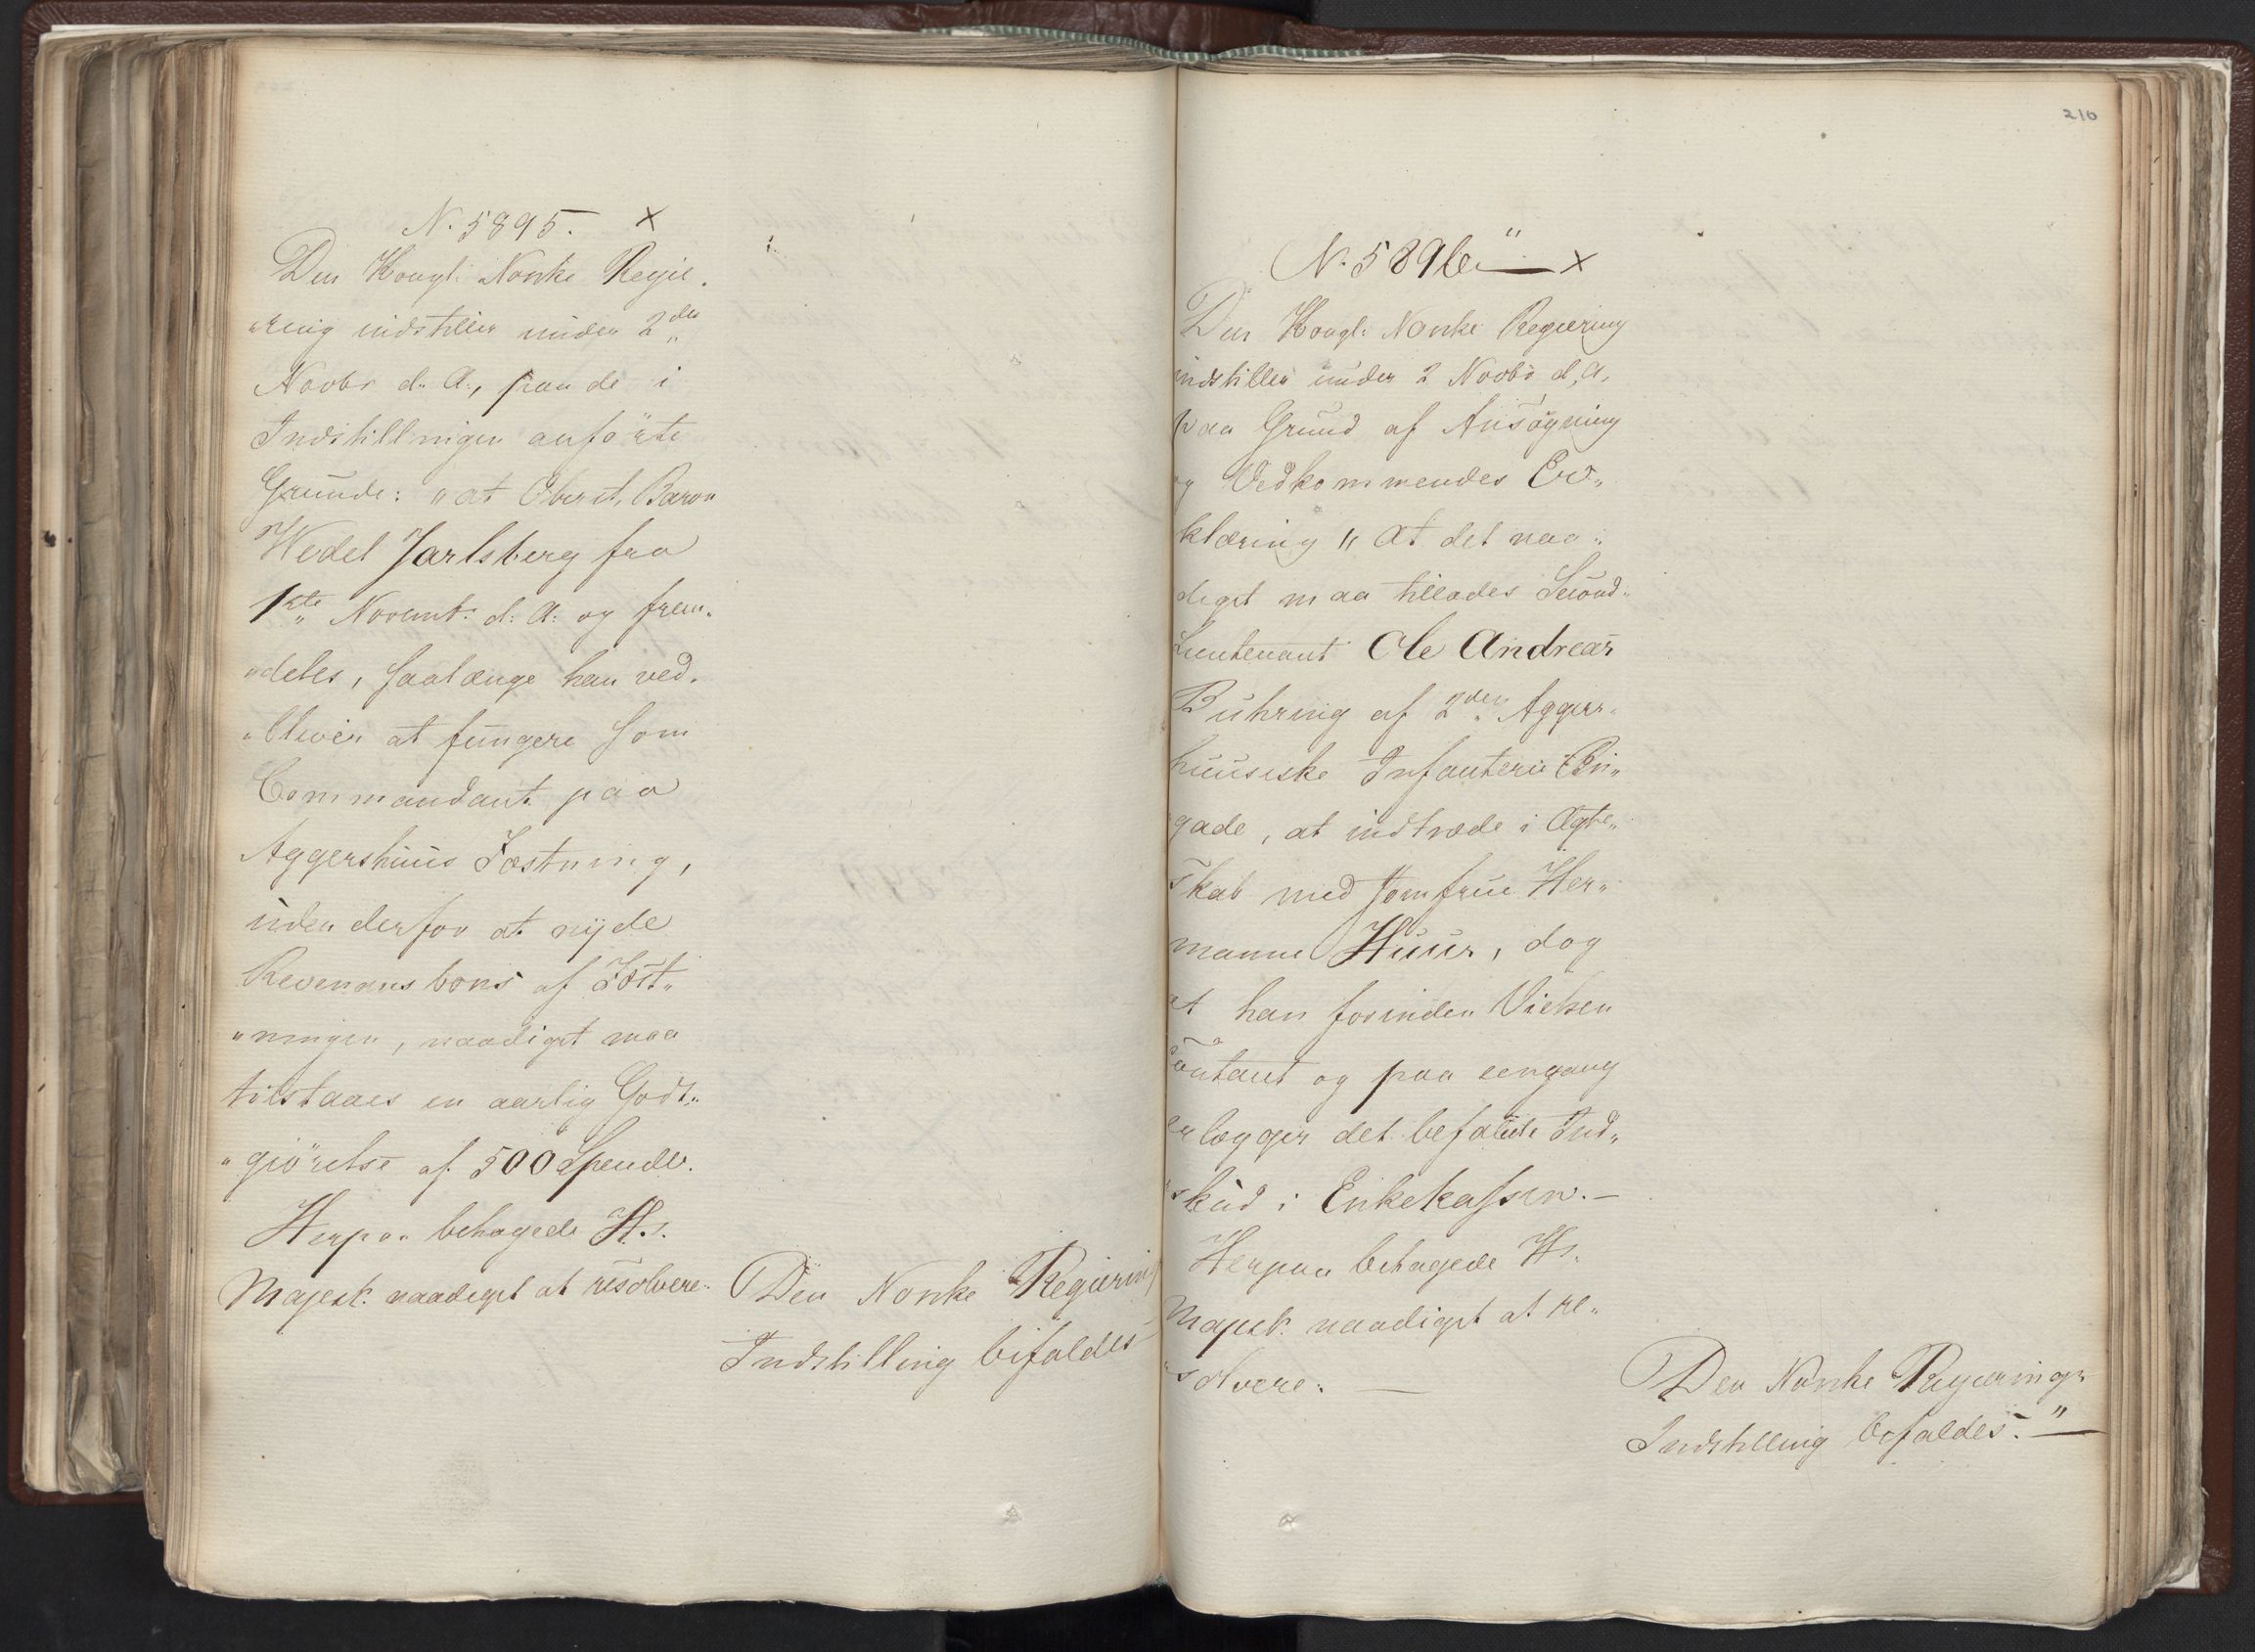 N. 5895. X
Den Kongl: Norske Regie„
„ring indstiller under 2den
Novbr d. A., paa de i
Indstillingen anförte
Grunde: „at Oberst, Baron
Wedel Jarlsberg fra
1ste Novemb: d: A: og frem„
„deles, saalænge han ved„
„bliver at fungere som
Commandant paa
Aggershuus Fæstning,
uden derfor at nyde
Revenuns bons af Fæst„
„ningen, naadigst maa
tilstaaes en aarlig Godt„
„giörelse af 500 Specdlr.
Herpaa behagede Hs.
Majest: naadigst at resolvere:
Den Norske Regierings
Indstilling bifaldes
210
N. 5896 „ — X
Den Kongl: Norske Regiering
indstiller under 2 Novbr d. A.
paa Grund af Ansøgning
og Vedkommendes Er„
klæring „ at det naa„
digst maa tillades Second„
Lieutenant Ole Andreas
Buhring af 2den Aggers„
huusiske Infanterie Bri„
gade, at indtræde i Ægte„
skab med Jomfrue Her„
manne Huus, dog
at han forinden Vielsen
contant og paa eengang
erlægger det befalede Ind„
„skud i Enkekassen. —
Herpaa behagede Hs.
Majest: naadigst at re„
„solvere: —
Den Norske Regierings
Indstilling bifaldes. „ —